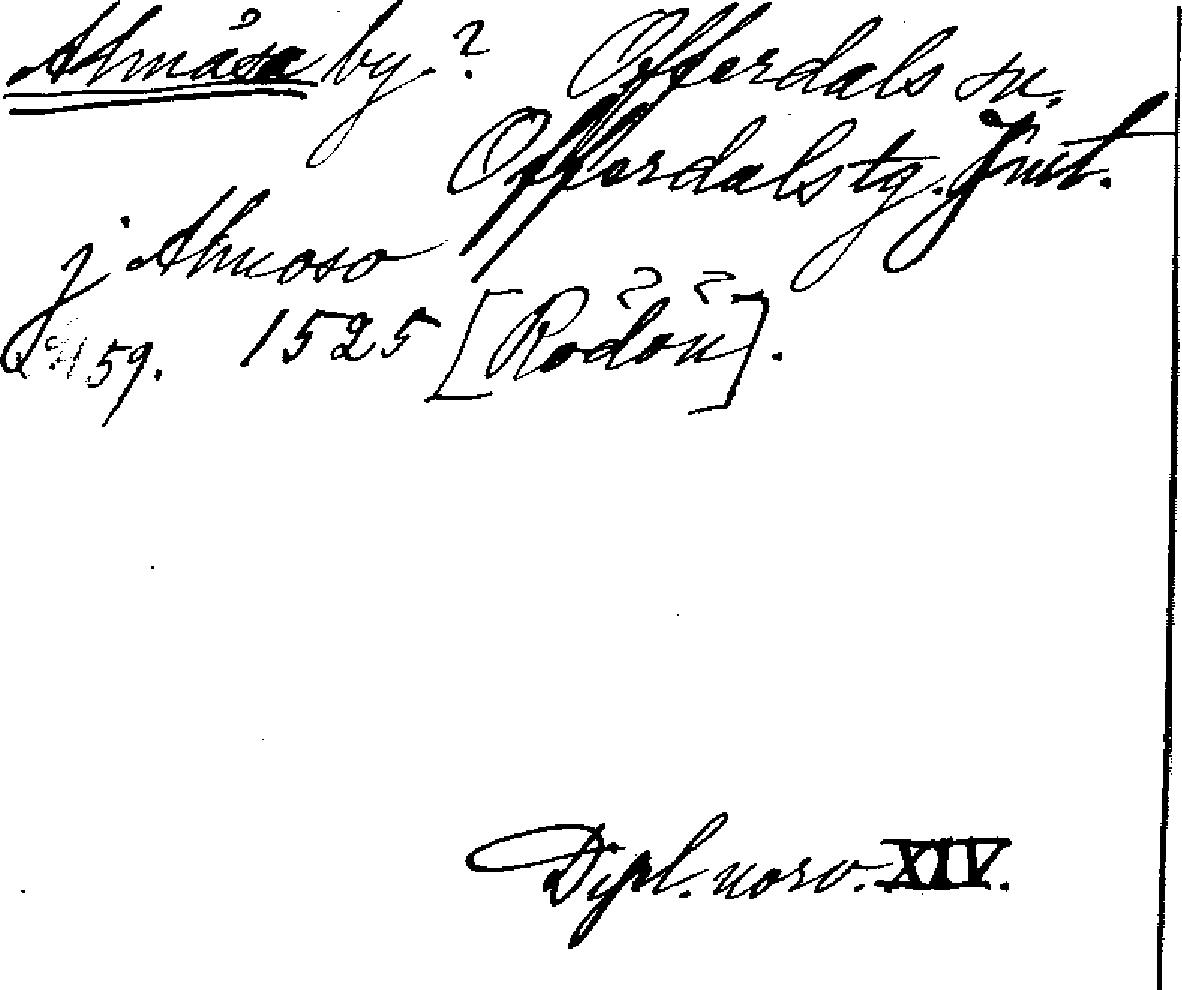 Almåsa by? Offerdals sn.
Offerdals tg. Jmt.
j Almoso
59. 1525 [Rödön].
Dipl. norv. XIV.